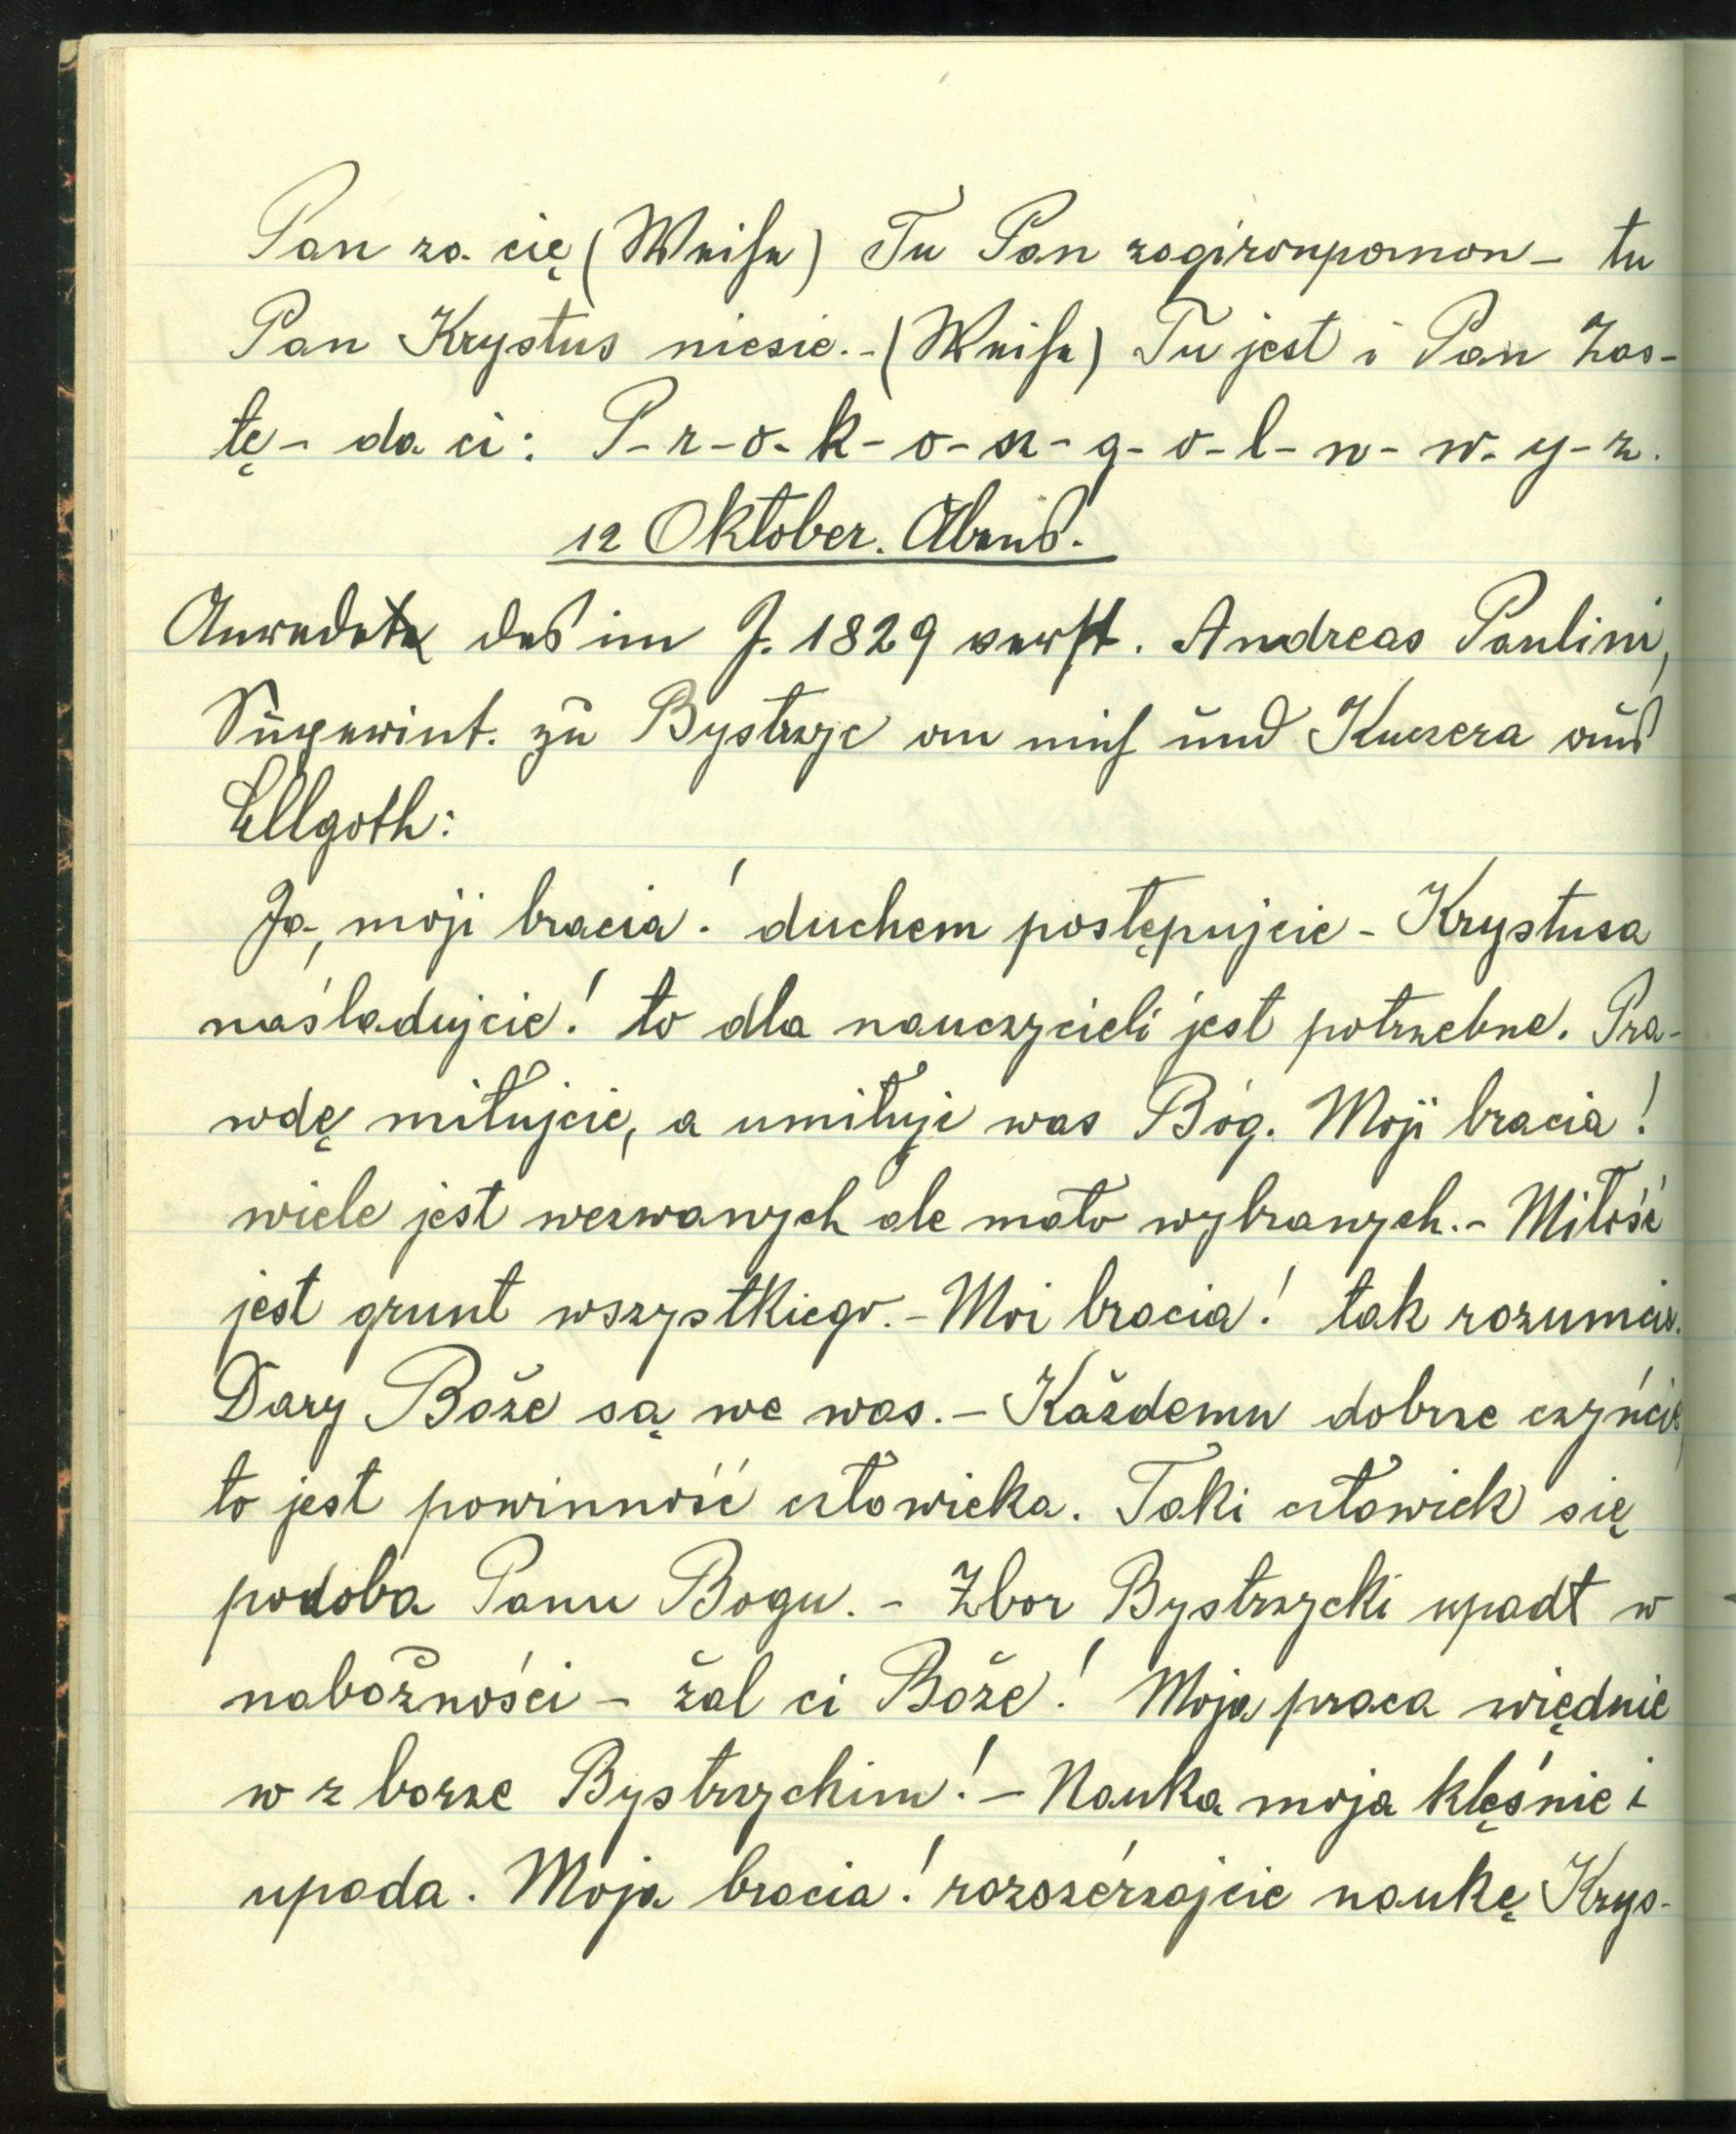 Pan za cię (Weise) Tu Pan zagironpomon – tu
Pan Krystus niesie. – (Weise) Tu jest i Pan Zas-
tę – da ci: P-r-o-k-o-sz-g-o-l-n-w-y-z.
12 Oktober. Abend.
Anrede des im J. 1829 verst. Andreas Paulini,
Superint. zu Bystrzyc an mich und Kuczera aus
Ellgoth:
Ja, moji bracia! duchem postępujcie – Krystusa
naśladujcie! to dla nauczycieli jest potrzebne. Pra-
wdę miłujcie, a umiłuje was Bóg. Moji bracia!
wiele jest wezwanych ale mało wybranych. – Miłość
jest grunt wszystkiego. – Moi bracia! tak rozumcie.
Dary Boże są we was. – Każdemu dobrze czyńcie,
to jest powinność człowieka. Taki człowiek się
podoba Panu Bogu. – Zbor Bystrzycki upadł w
nabożności – żal ci Boże! Moja praca więdnie
w zborze Bystrzyckim! – Nauka moja klęśnie i
upada. Moja bracia! rozszérzajcie naukę Krys-